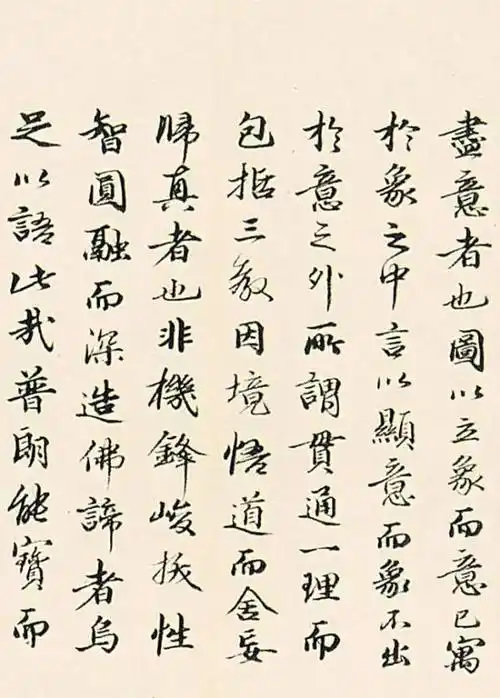 盡意者也圖以立象而意已寓
於象之中言以顯意而象不出
於意之外所謂貫通一理而
包括三教因境悟道而舍妄
歸真者也非機鋒峻拔性
智圓融而深造佛諦者烏
足以語此哉普朗能寶而